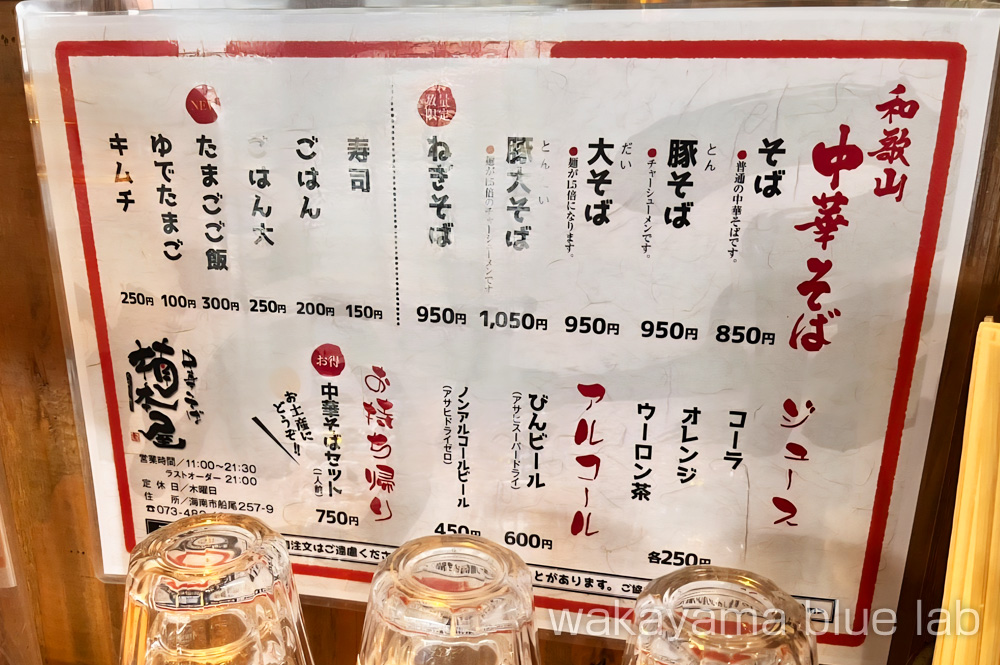 和歌山
中華そば
そば
普通の中華そばです。
850円
とん
豚そば
チャーシューメンです。
950円
だい
大そば
麺が1.5倍になります。
950円
豚大そば
麺が1.5倍のチャーシューメンです
1,050円
数量限定
ねぎそば
950円
寿司
150円
ごはん
200円
ごはん大
250円
NEW
たまごご飯
300円
ゆでたまご
100円
キムチ
250円
ジュース
コーラ
オレンジ
ウーロン茶
各250円
アルコール
びんビール
(アサヒスーパードライ)
600円
ノンアルコールビール
(アサヒドライゼロ)
450円
お持ち帰り
お得
中華そばセット
(一人前)
750円
お土産に
どうぞ!!
中華そば
楠木屋
営業時間/11:00〜21:30
ラストオーダー 21:00
定休日/木曜日
住 所/海南市船尾257-9
☎073-482
注文はご遠慮くださ
とがあります。ご協
wakayama blue lab